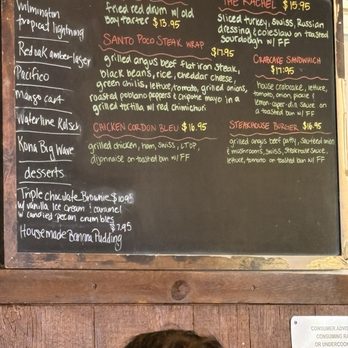 Wilmington
tropical lightning
Red oak amber lager
Pacifico
mango cart
Waterline Kölsch
Kona Big Wave
desserts
Triple Chocolate Brownie $10.95
w/ vanilla ice cream & caramel
w/ candied pecan crumbles
Housemade Banana Pudding $7.95
fried red drum w/ old
bay tarter $13.95
SANTO POCO STEAK WRAP
$17.95
grilled angus beef flat iron steak,
black beans, rice, cheddar cheese,
green chilis, lettuce, tomato, grilled onions,
roasted poblano peppers & chipotle mayo in a
grilled tortilla w/ red chimichuri
CHICKEN CORDON BLEU $16.95
grilled chicken, ham, swiss, LTOP,
dijonnaise on toasted bun w/ FF
THE RACHEL $15.95
sliced turkey, Swiss, Russian
dressing & coleslaw on toasted
sourdough w/ FF
CRABCAKE SANDWICH
$17.95
house crabcake, lettuce,
tomato, onion, pickle &
lemon-caper-dill sauce on
a toasted bun w/ FF
STEAKHOUSE BURGER $16.95
grilled angus beef patty, sauteed onion
& mushrooms, swiss, steakhouse sauce,
lettuce, tomato on toasted bun w/ FF
CONSUMER ADVI
CONSUMING RA
OR UNDERCOOK